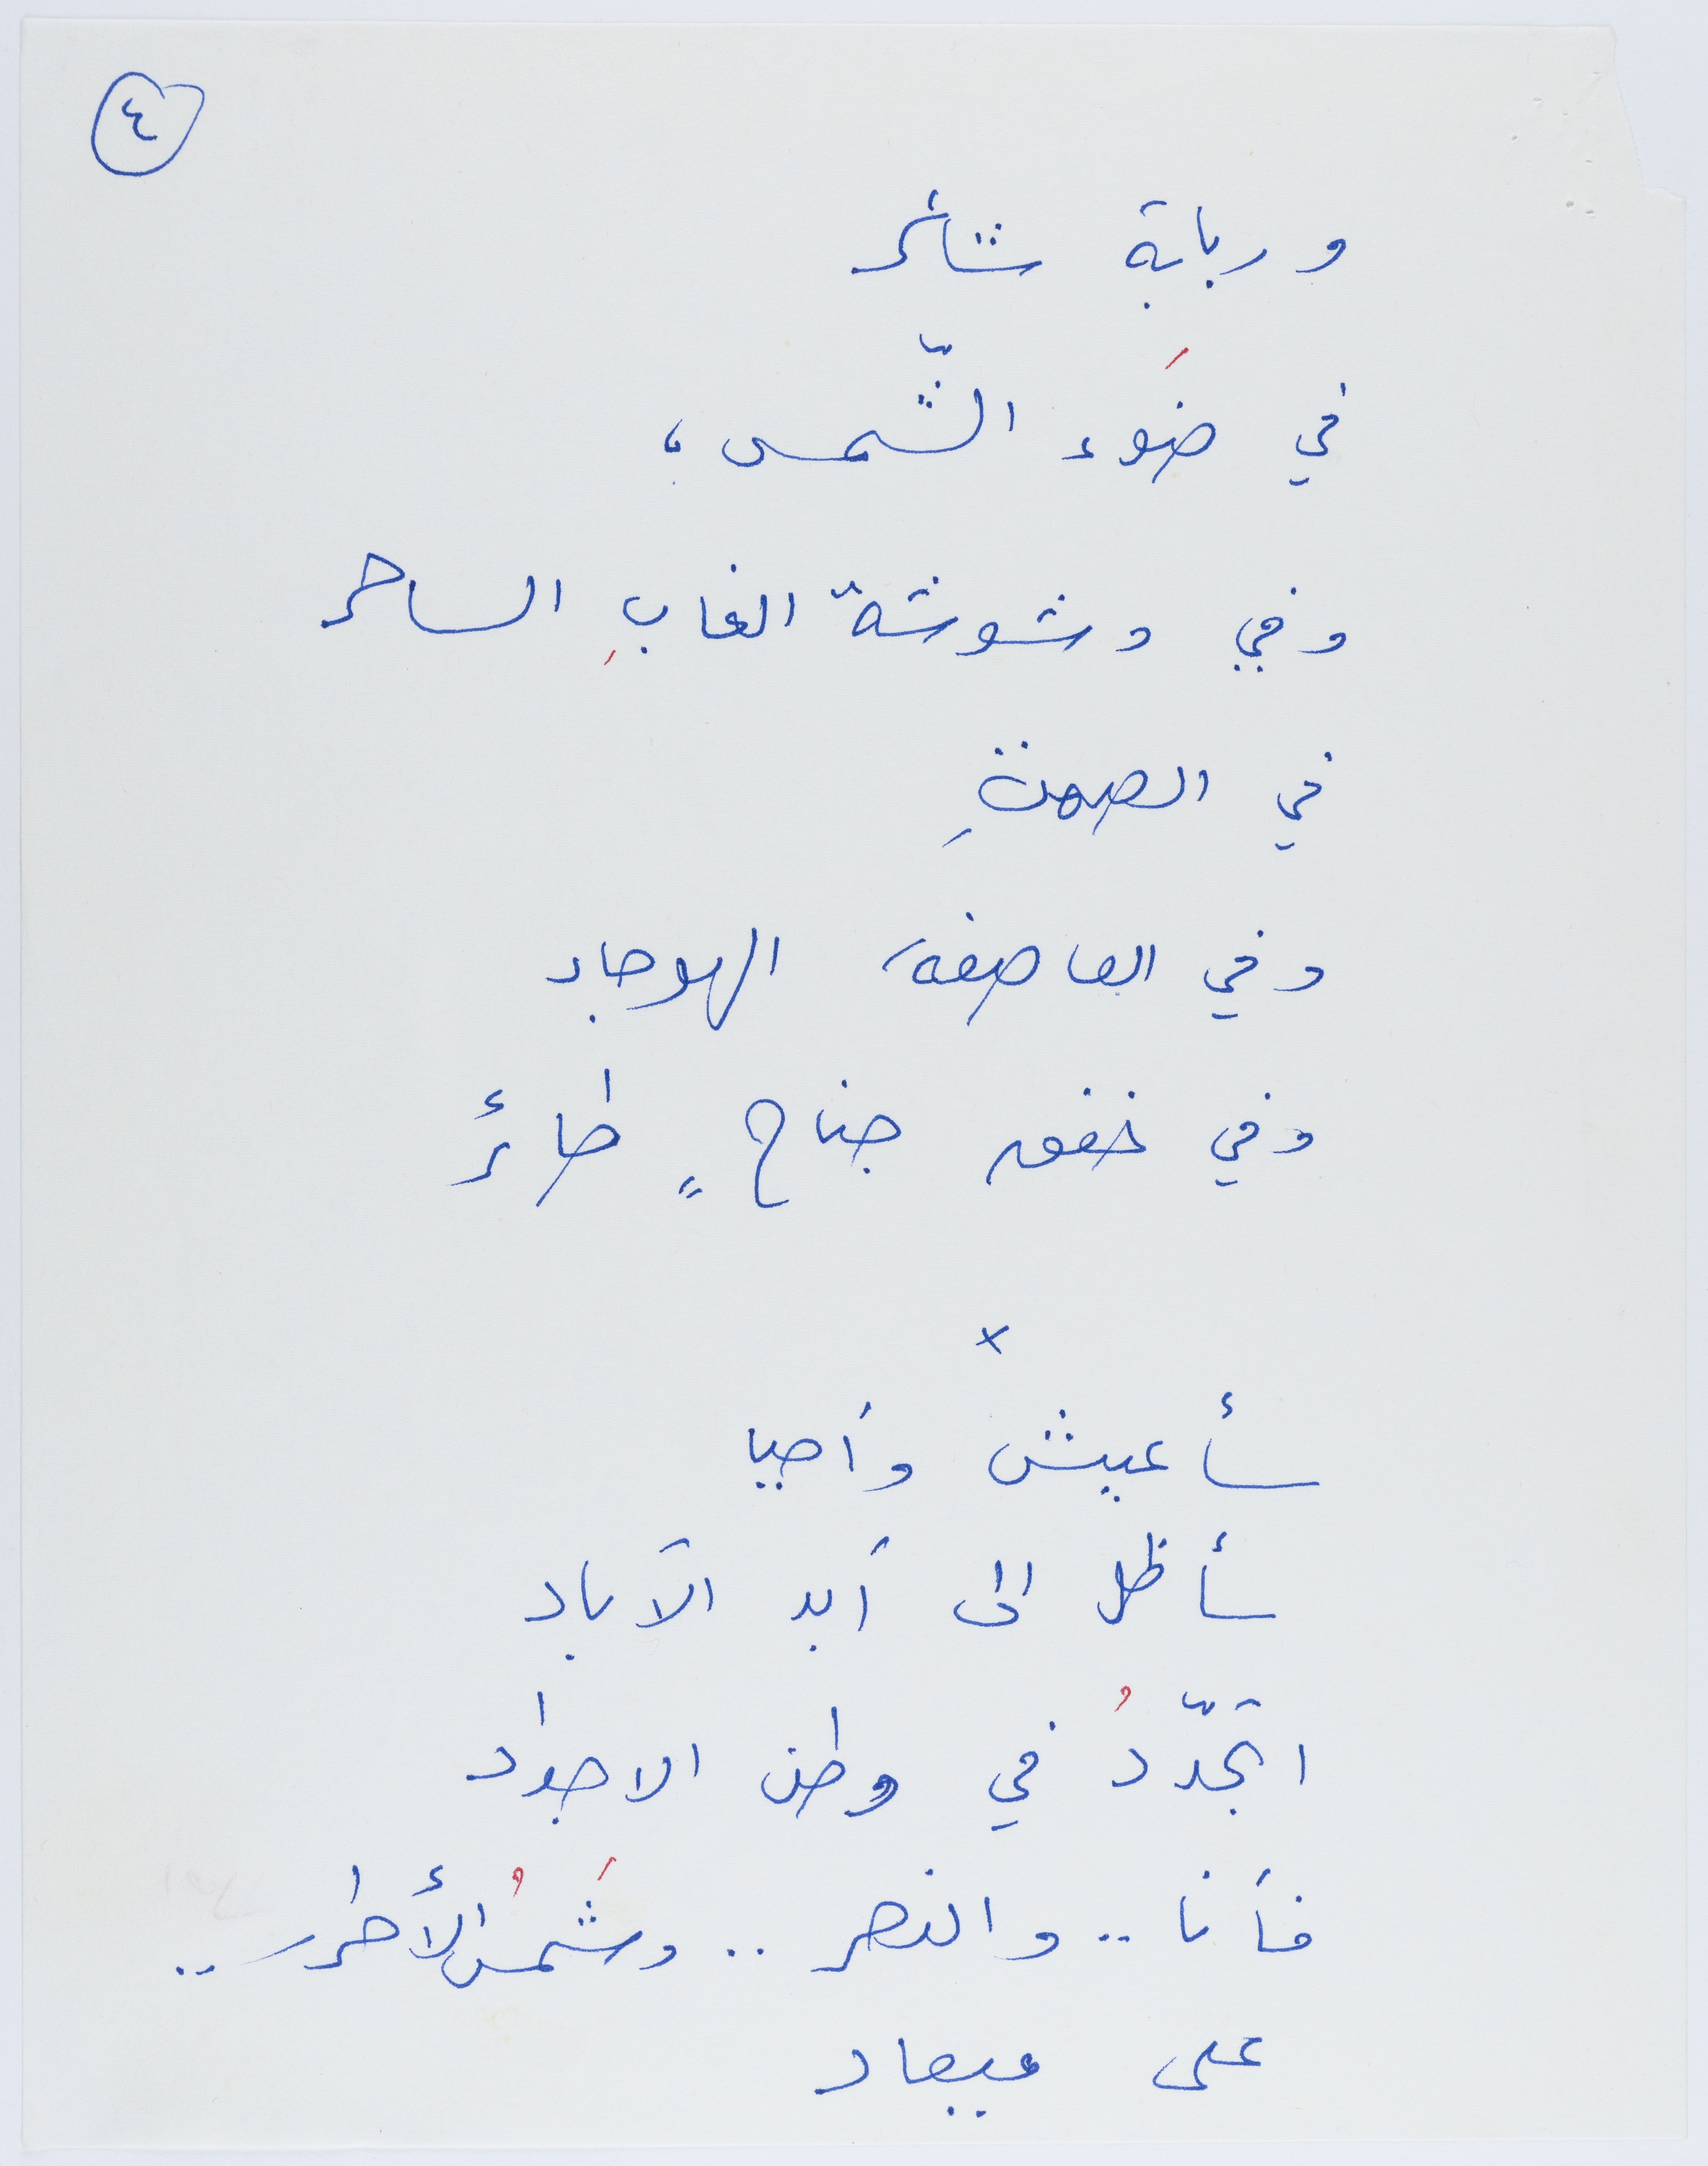 ٤
وربابة ثائر
في ضَوء الشّمس،
وفي وشوشة الغابِ الساحر
في الصمتِ
وفي العاصفة الهوجاء
وفي خفق جناحٍ طائر
×
سأعيش وأحيا
سأظل الى أبد الآباد
اتجدّدُ في وطن الاجواد
فأنا .. والنصر .. وشَمسُ الأحرار ..
على ميعاد